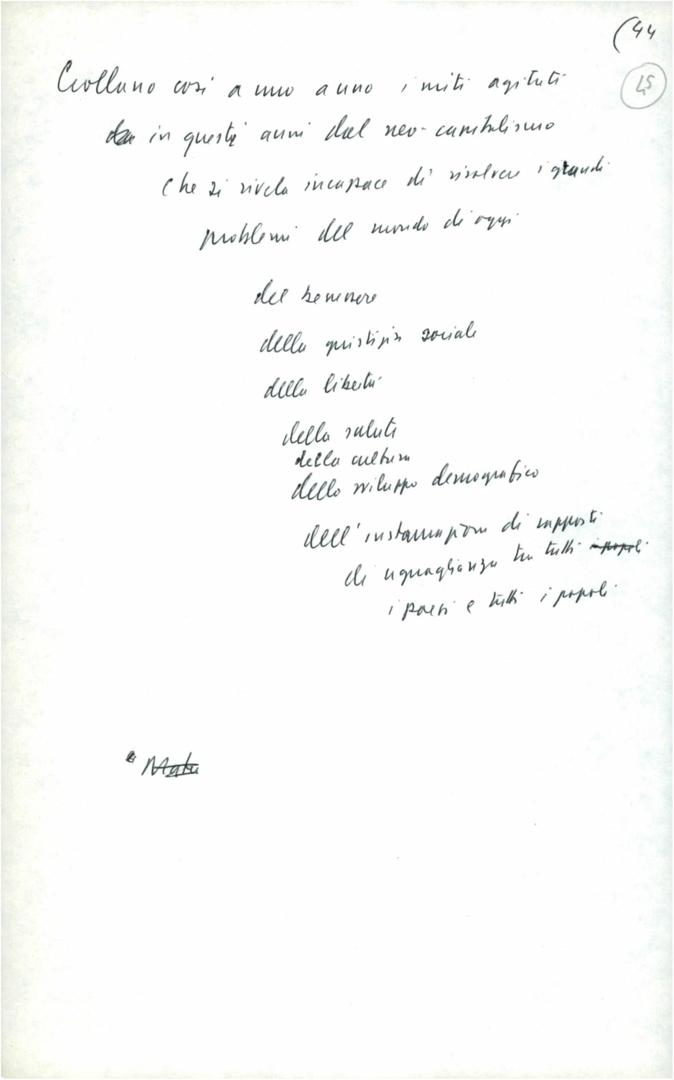 (44
45
Crollano così a uno a uno i miti agitati
da in questi anni dal neo-capitalismo
che si rivela incapace di risolvere i grandi
problemi del mondo di oggi
del benessere
della giustizia sociale
della libertà
della salute
della cultura
dello sviluppo demografico
dell'instaurazione di rapporti
di uguaglianza tra tutti i popoli
i paesi e tutti i popoli